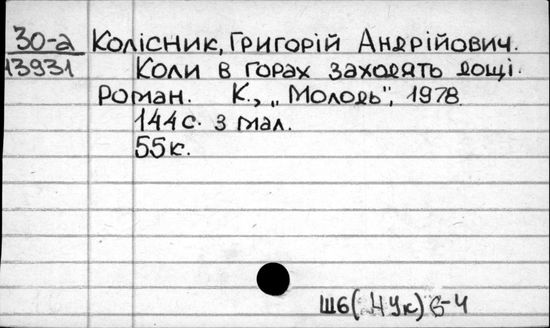 30-а Колісник, Григорій Андрійович.
13931 Коли в горах заходять дощі.
Роман. К., „Молодь", 1978.
144 с. з мал.
55 к.
Ш6( 4Ук) 6-4